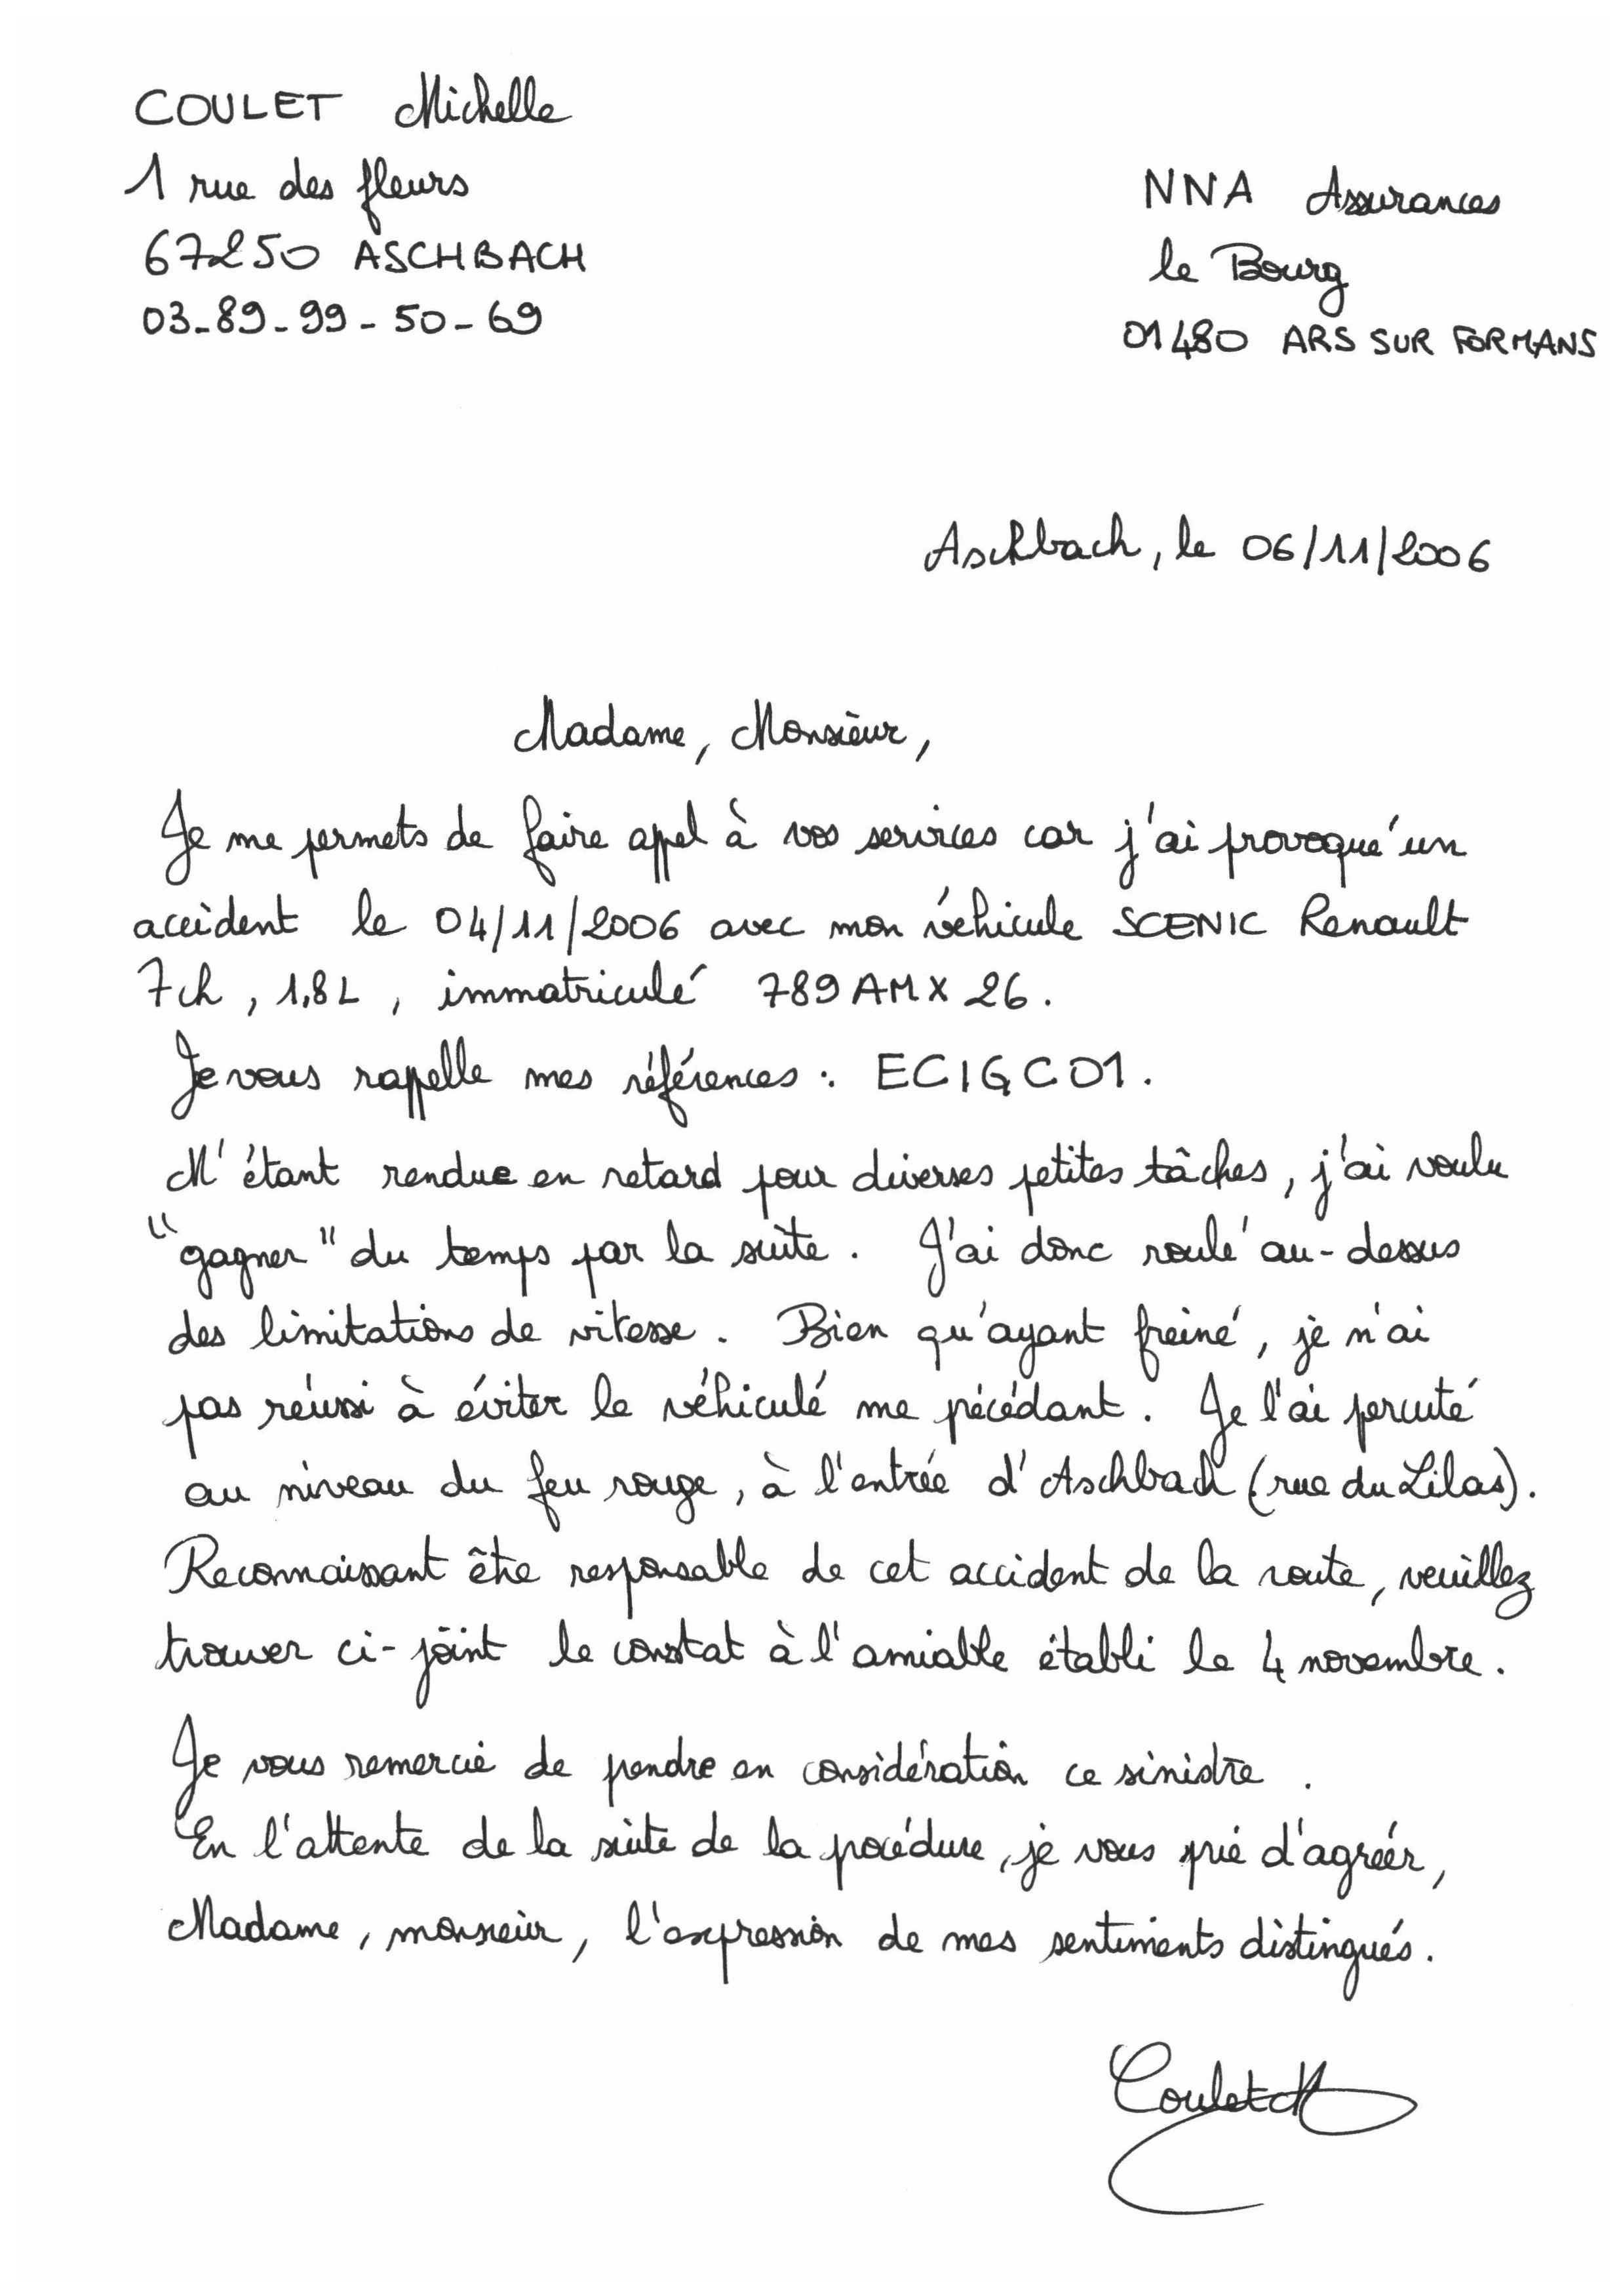 COULET Michelle
1 rue des fleurs
67250 ASCHBACH
03-89-99-50-69
NNA Assurances
le Bourg
01480 ARS SUR FORMANS
Aschbach, le 06/11/2006
Madame, Monsieur,
Je me permets de faire appel à vos services car j'ai provoqué un
accident le 04/11/2006 avec mon véhicule SCENIC Renault
7ch, 1,8L, immatriculé 789AMX26.
Je vous rappelle mes références : ECIGC01.
M'étant rendue en retard pour diverses petites tâches, j'ai voulu
"gagner" du temps par la suite. J'ai donc roulé au-dessus
des limitations de vitesse. Bien qu'ayant freiné, je n'ai
pas réussi à éviter le véhiculé me pécédant. Je l'ai percuté
au niveau du feu rouge, à l'entrée d'Aschbach (rue du Lilas).
Reconnaissant être responsable de cet accident de la route, veuillez
trouver ci-joint le constat à l'amiable établi le 4 novembre.
Je vous remercie de prendre en considération ce sinistre.
En l'attente de la suite de la procédure, je vous prie d'agréer,
Madame, monsieur, l'expression de mes sentiments distingués.
Coulet M